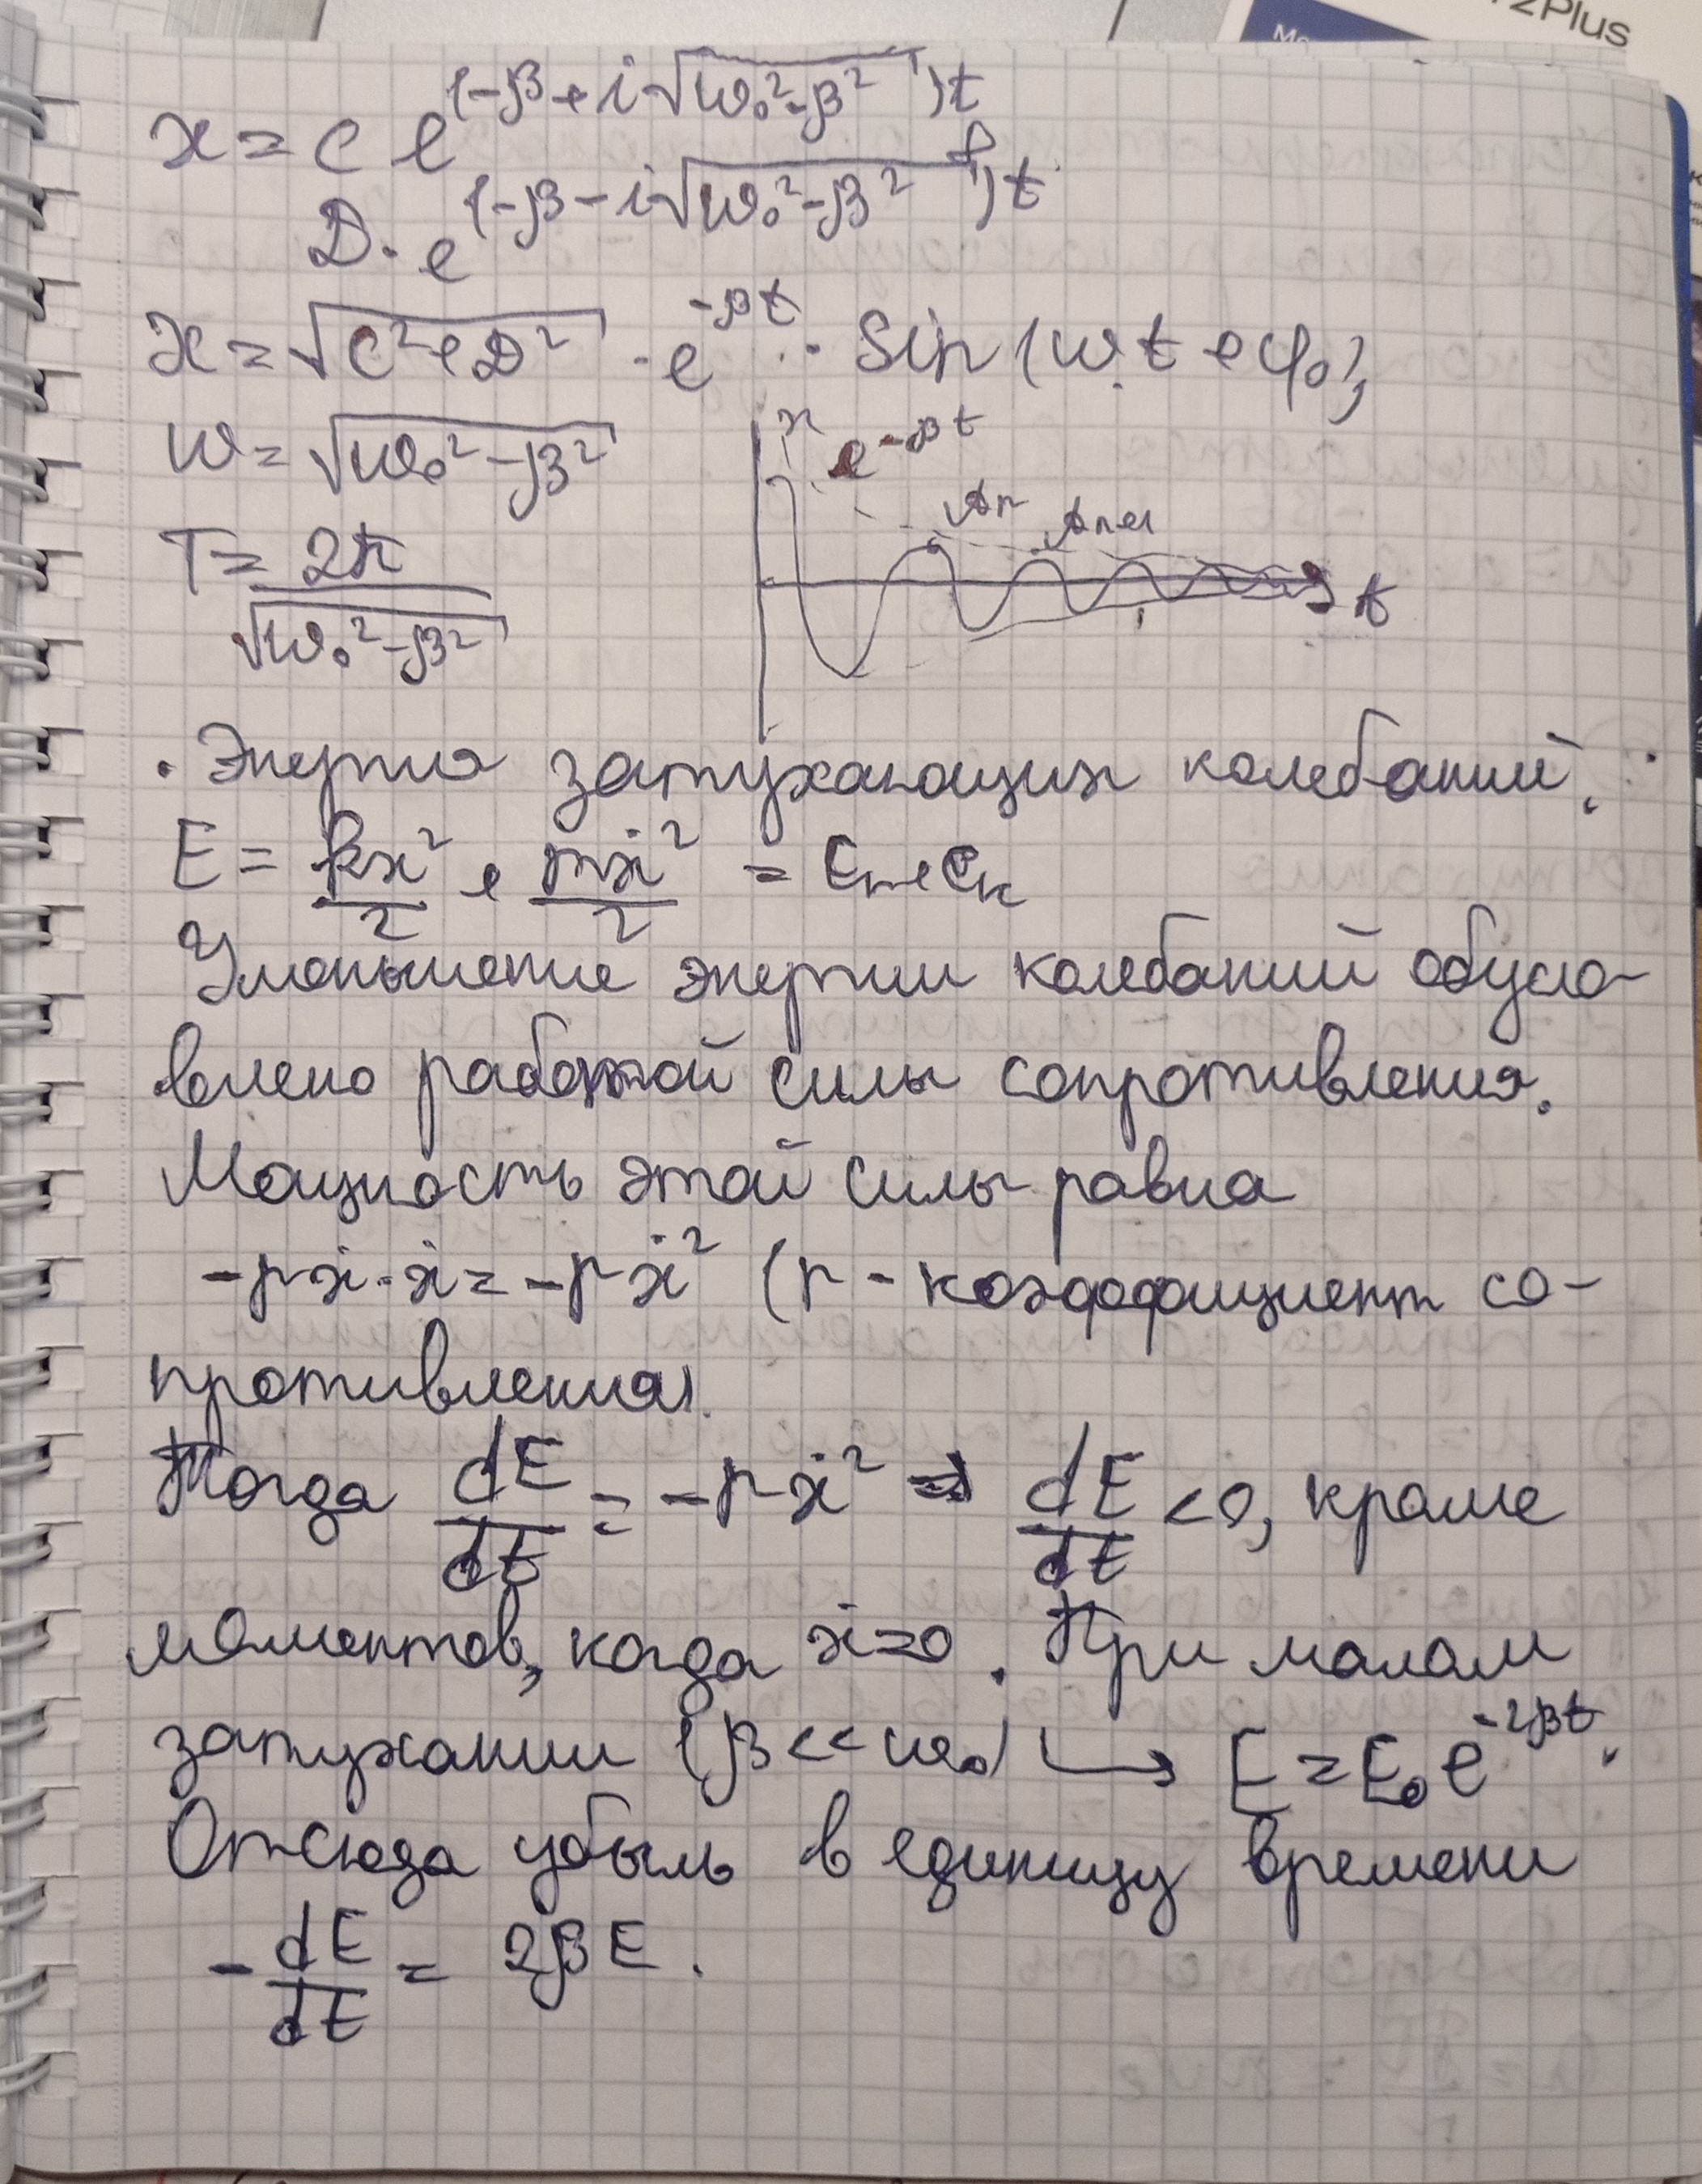 Z2Plus
x = C e^{(-β + i√(ω₀² - β²))t} +
D · e^{(-β - i√(ω₀² - β²))t}
x = √(C² + D²) · e^{-βt} · Sin(ωt + φ₀),
ω = √(ω₀² - β²)
x
e^{-βt}
Aₙ
Aₙ₊₁
t
T = 2π / √(ω₀² - β²)
· Энергия затухающих колебаний.
E = kx²/2 + mẋ²/2 = Eп + Eк
Уменьшение энергии колебаний обусло-
влено работой силы сопротивления.
Мощность этой силы равна
-rẋ·ẋ = -rẋ² (r - коэффициент со-
противления).
Тогда dE/dt = -rẋ² ⇒ dE/dt < 0, кроме
моментов, когда ẋ=0. При малом
затухании (β << ω₀) ↳ E = E₀e^{-2βt}.
Отсюда убыль в единицу времени
-dE/dt = 2βE.